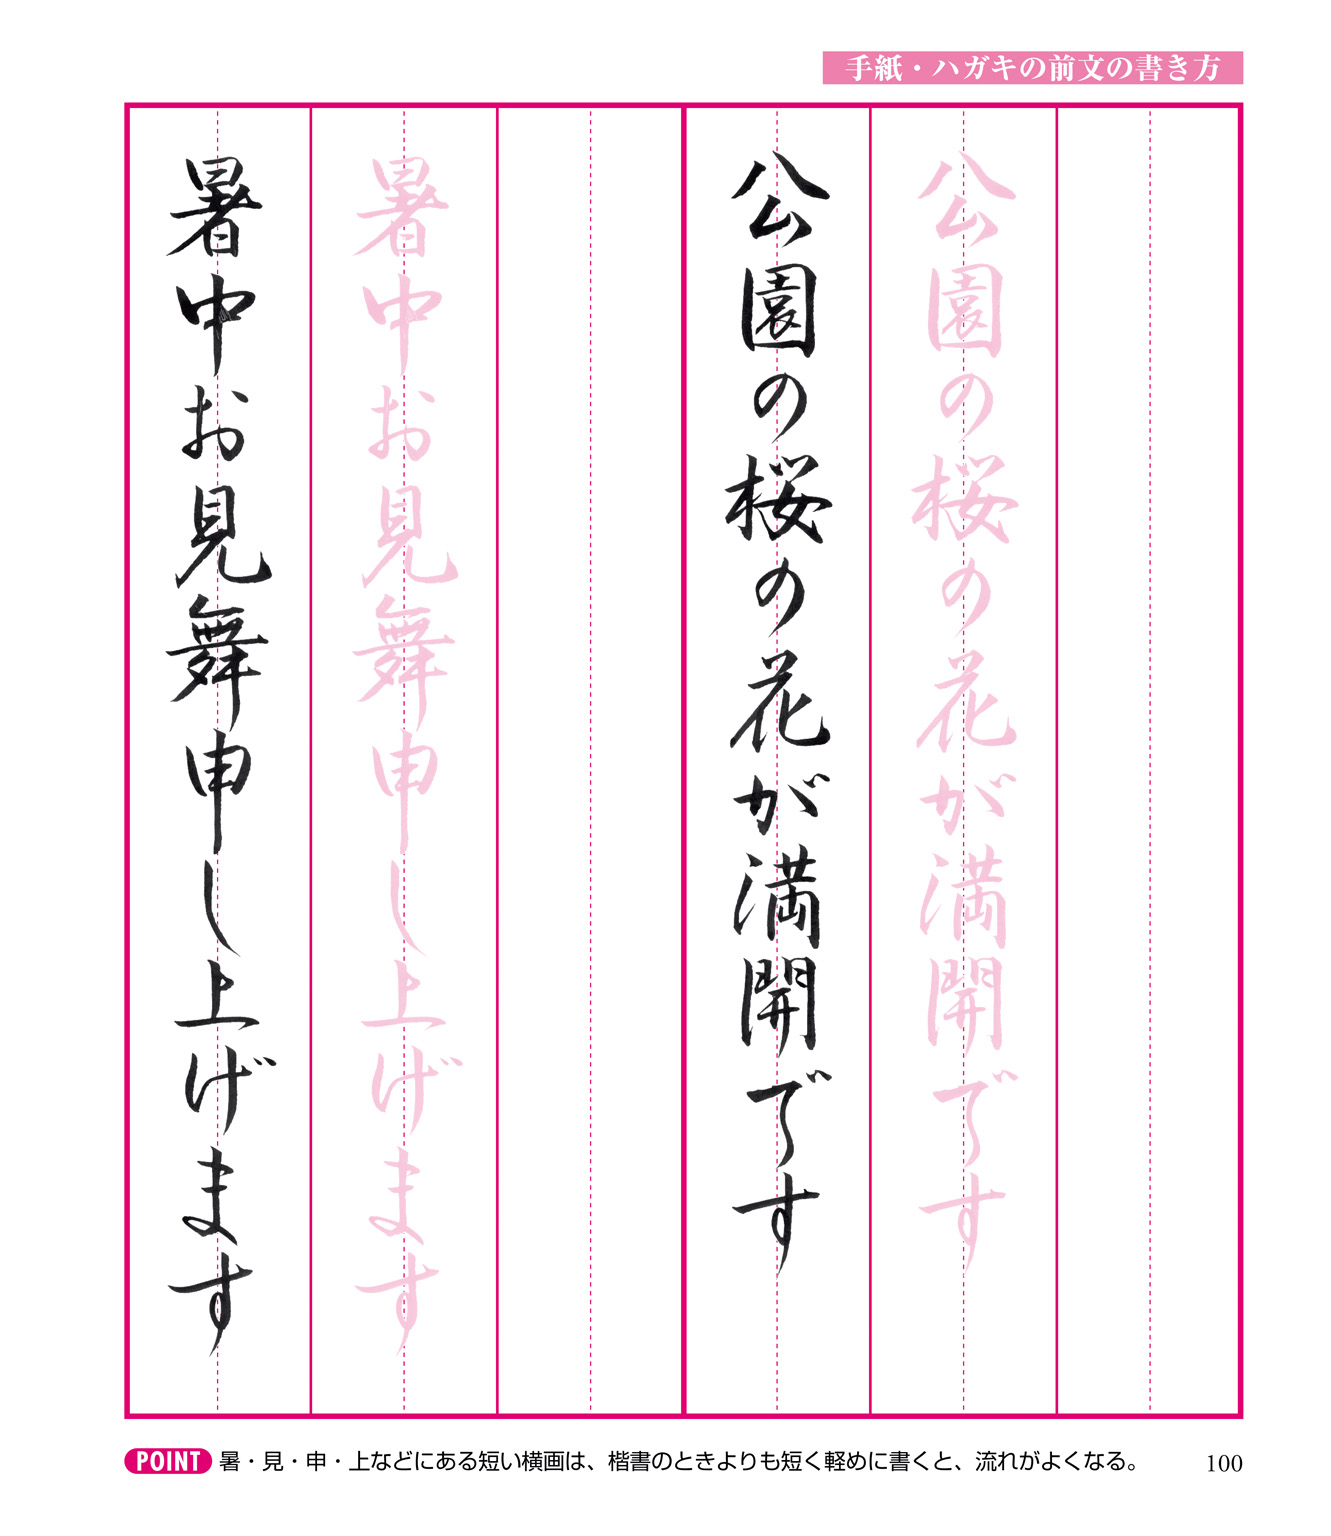 手紙・ハガキの前文の書き方
公園の桜の花が満開です
公園の桜の花が満開です
暑中お見舞申し上げます
暑中お見舞申し上げます
POINT 暑・見・申・上などにある短い横画は、楷書のときよりも短く軽めに書くと、流れがよくなる。
100